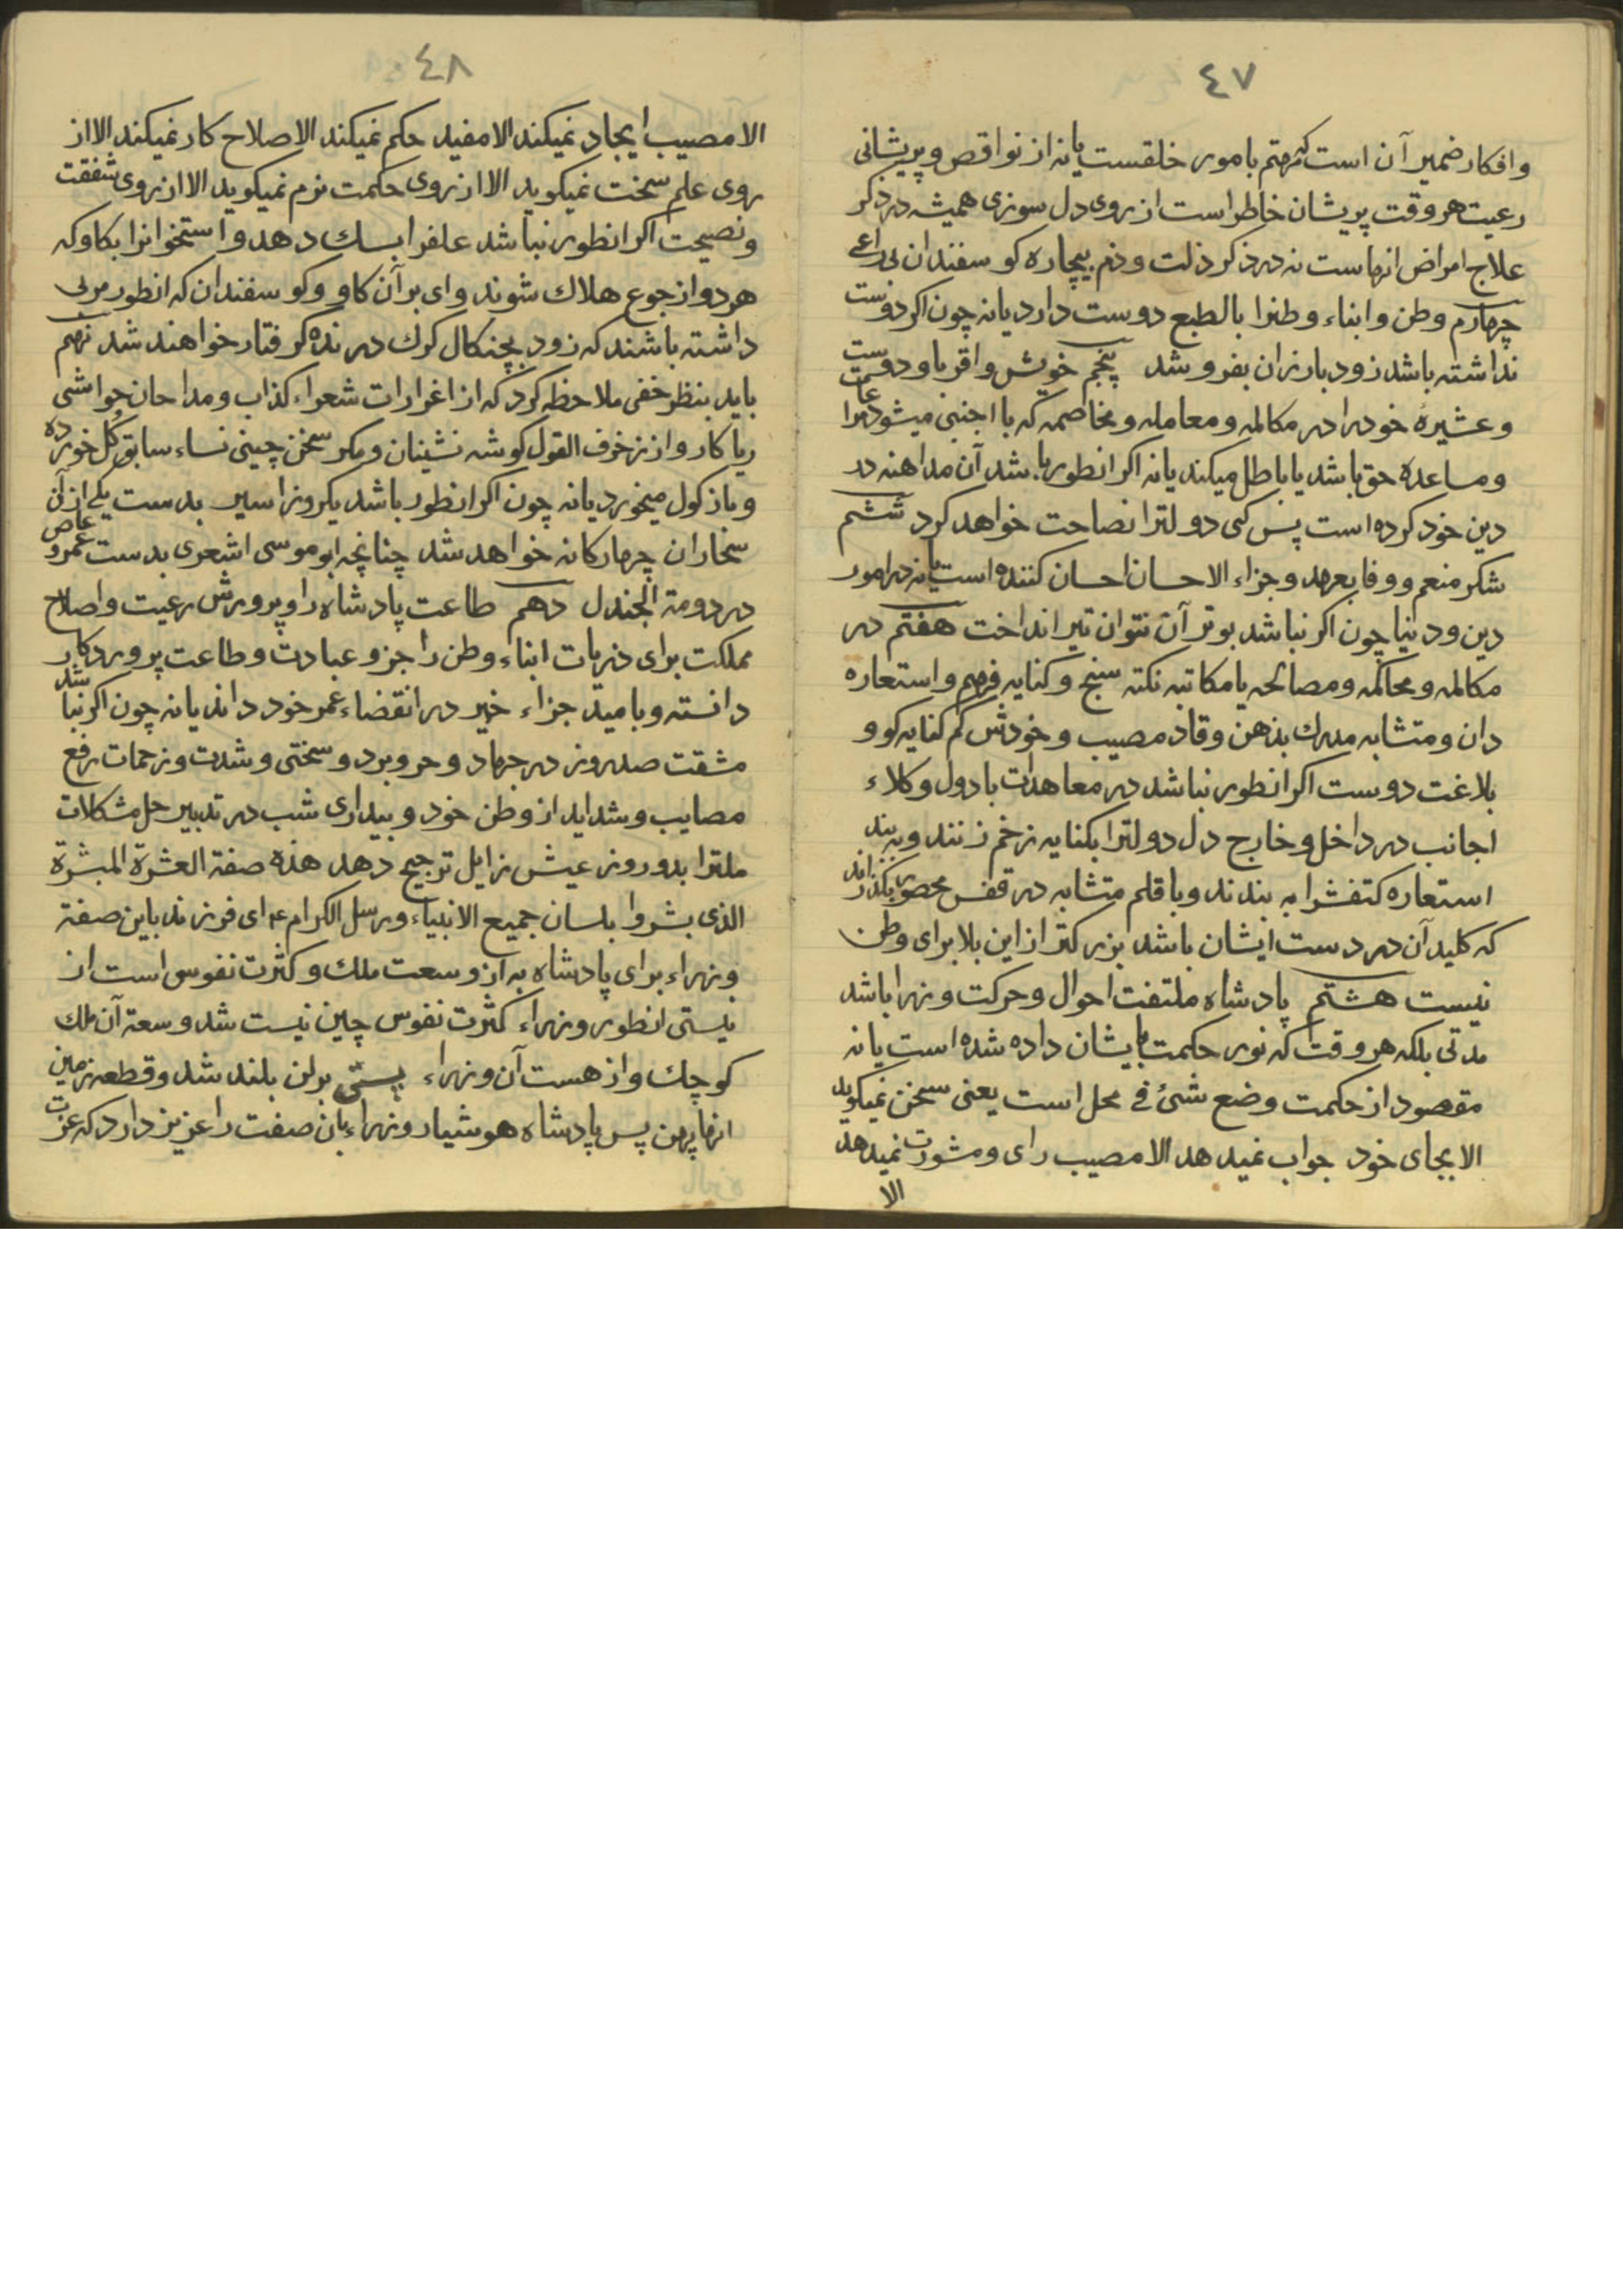 ٤٧
وافکار ضمیر آن است که مهتم بامور خلقست یانه از نواقص و پریشانی
رعیت هر وقت پریشان خاطر است از روی دل سوزی همیشه در ذکر
علاج امراض انهاست نه در ذکر ذلت و ذم بیچاره کو سفندان بی راعی
چهارم وطن و ابناء وطنرا بالطبع دوست دارد یانه چون اکر دوست
نداشته باشد زود بارزان بفروشد پنجم خویش و اقربا و دوست
وعشیرهٔ خود را در مکالمه و معامله و مخاصمه که با اجنبی میشود
ومساعده حق باشد یا باطل میکند یانه اکر انطور باشد آن مداهنه در
دین خود کرده است پس کی دولترا نصاحت خواهد کرد ششم
شکر منعم و وفا بعهد و جزاء الاحسان احسان کننده است یانه در امور
دین و دنیا چون اکر نباشد بوتر آن نتوان تیر انداخت هفتم در
مکالمه و محاکمه و مصالحه یا مکاتبه نکته سنج و کنایه فهم و استعاره
دان و متشابه مدرك بذهن وقاد مصیب و خودش کم کنایه کو و
بلاغت دوست اکر انطور نباشد در معاهدات با دول و کلاء
اجانب در داخل و خارج دل دولترا بکنایه زخم زنند و به بند
استعاره کتفشرا به بندند و با قلم متشابه در قفس محصور بکذارند
که کلید آن در دست ایشان باشد بزرکتر از این بلا برای وطن
نیست هشتم پادشاه ملتفت احوال و حرکت وزرا باشد
مدتی بلکه هر وقت که نور حکمت بایشان داده شده است یانه
مقصود از حکمت وضع شئ فی محل است یعنی سخن نمیکوید
الا بجای خود جواب نمیدهد الا مصیب رای و مشورت نمیدهد
الا
٤٨
الا مصیب ایجاد نمیکند الا مفید حکم نمیکند الا صلاح کار نمیکند الا از
روی علم سخت نمیکوید الا از روی حکمت نرم نمیکوید الا از روی شفقت
و نصیحت اکر انطور نباشد علفرا بسك دهد و استخوانرا بکاو که
هر دو از جوع هلاك شوند وای بر آن کاو و کوسفندان که انطور مربی
داشته باشند که زود بچنکال کرك درنده کرفتار خواهند شد نهم
باید بنظر خفی ملاحظه کرد که از اغرارات شعراء کذاب و مداحان حواشی
ریا کار و از زخرف القول کوشه نشینان و مکر سخن چینی نساء سابق کل خورده
و باز کول میخورد یانه چون اکر انطور باشد یکروز اسیر بدست یکی از آن
سخاران چهارکانه خواهد شد چنانچه ابو موسی اشعری بدست عمرو عاص
در دومة الجندل دهم طاعت پادشاه را و پرورش رعیت و اصلاح
مملکت برای ذریات ابناء وطن را جزو عبادت و طاعت پروردکار
دانسته و بامید جزاء خیر در انقضاء عمر خود داند یانه چون اکر نباشد
مشقت صد روز در جهاد و حر و برد و سختی و شدت و زحمات رفع
مصایب و شداید از وطن خود و بیداری شب در تدبیر حل مشکلات
ملترا بدو روز عیش زایل ترجیح دهد هذه صفة العشرة المبشرة
الذی بشروا بلسان جمیع الانبیاء و رسل الکرام ع‌م ای فرزند باین صفة
وزراء برای پادشاه به از وسعت ملك و کثرت نفوس است از
نیستی انطور وزراء کثرت نفوس چین نیست شد و سعة آن ملك
کوچك و از هست آن وزراء پستی برلن بلند شد و قطعه زمین
انها پهن پس پادشاه هوشیار وزراء بان صفت را عزیز دارد که عزت